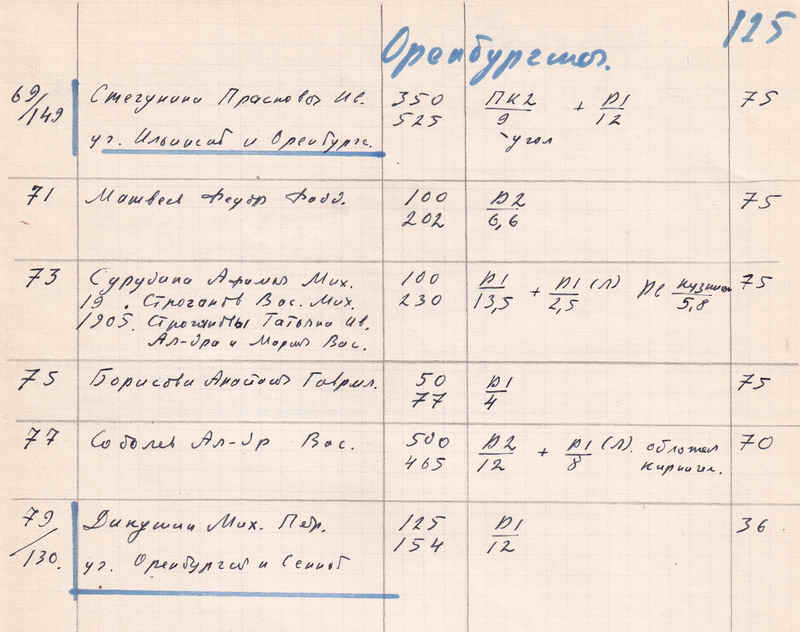 125
Оренбургская.
69/149 Стегунина Прасковья Ив. 350 ПК2/9 + Д1/12 75
уг. Ильинской и Оренбургс. 525 угол
71 Матвеев Федор 100 Д2/6,6 75
202
73 Сурубина Мих. 100 Д1/13,5 + Д1/2,5 (Л) 75
19 . Строганов Вас. Мих. 230 кузница/5,8
1905. Строгановы Татьяна Ив.
Ал-дра и Мария Вас.
75 Борисова Анастасия Гаврил. 50 Д1/4 75
77
77 Соболев Ал-др Вас. 500 Д2/12 + Д1/8 (Л). обложен 70
465 кирпич.
79/130. Дикушин Мих. Петр. 125 Д1/12 36
уг. Оренбургской и Сенной 154